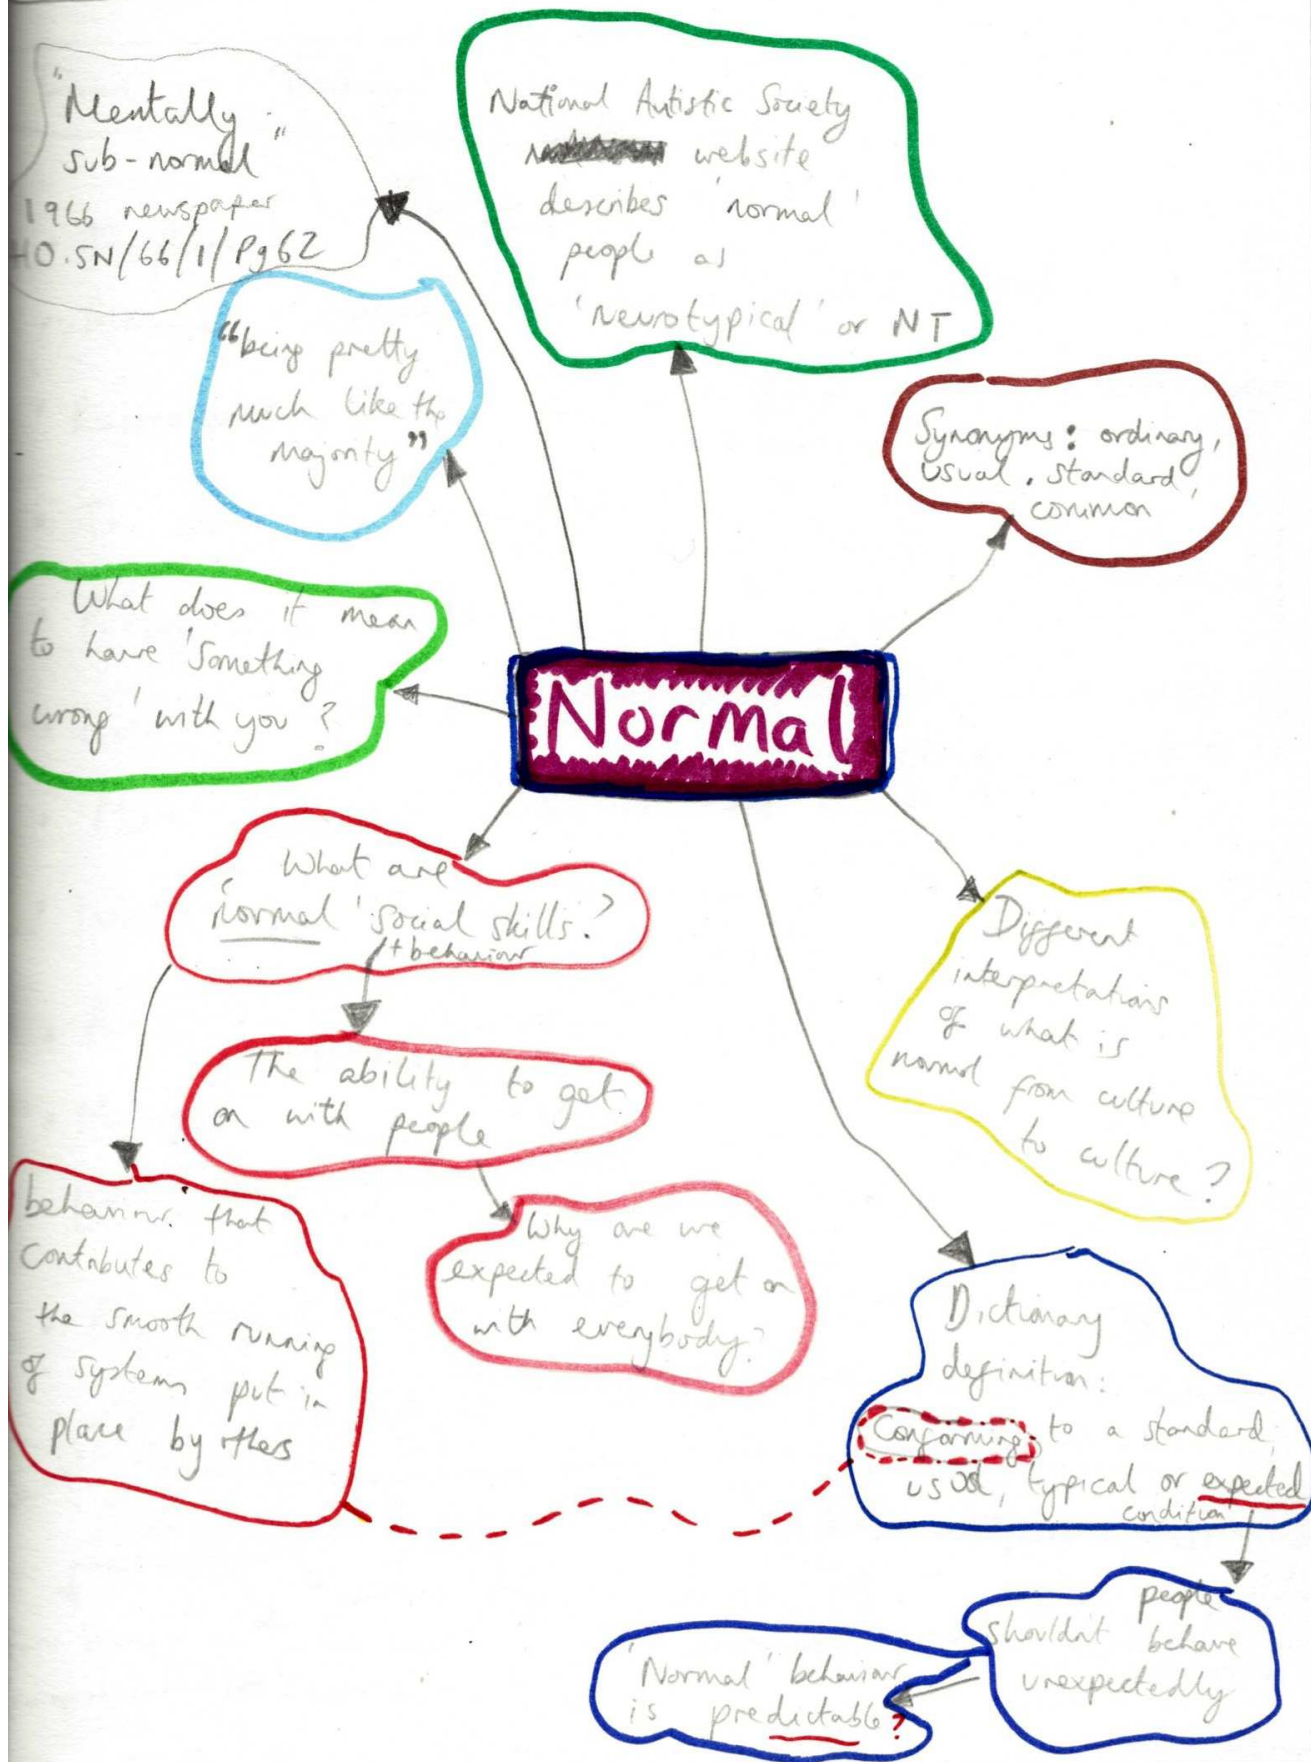 "Mentally
sub-normal"
1966 newspaper
HO.SN/66/1/Pg62
National Autistic Society
website
describes 'normal'
people as
'neurotypical' or NT
"being pretty
much like the
majority"
Synonyms: ordinary,
usual, standard,
common
What does it mean
to have 'Something
wrong' with you?
Normal
What are
'normal' social skills?
+ behaviour
The ability to get
on with people
Different
interpretations
of what is
normal from culture
to culture?
behaviour that
contributes to
the smooth running
of systems put in
place by others
Why are we
expected to get on
with everybody?
Dictionary
definition:
Conforming to a standard,
usual, typical or expected
condition
people
shouldn't behave
unexpectedly
'Normal' behaviour
is predictable?